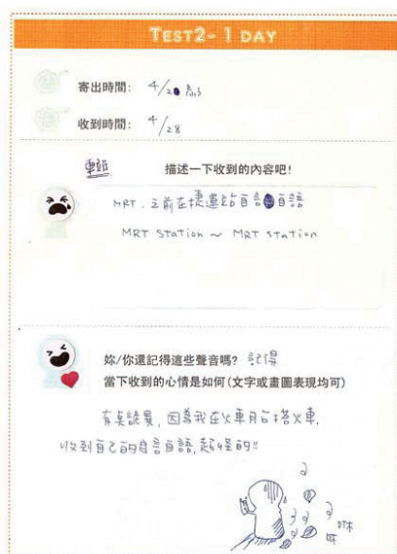 TEST2- 1 DAY
寄出時間: 4/2
收到時間: 4/28
描述一下收到的內容吧!
MRT. 之前在捷運站自言自語
MRT Station ~ MRT station
妳/你還記得這些聲音嗎? 記得
當下收到的心情是如何(文字或畫圖表現均可)
有點詭異, 因為我在火車月台搭火車,
收到自己的自言自語, 超怪的!!